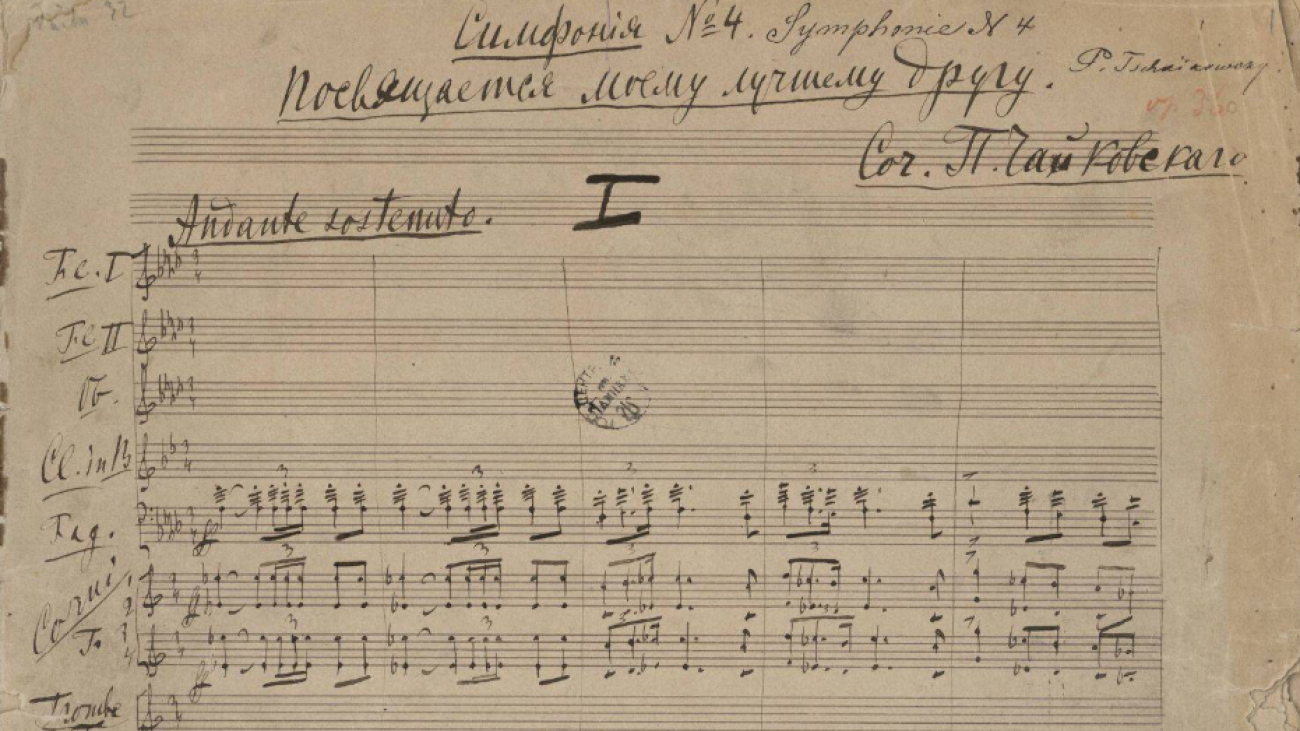 Симфонія № 4. Symphonie N 4
Посвящается моему лучшему другу. P. Tschaïkowsky.
Соч. П. Чайковскаго
I
Andante sostenuto.
Fl. I
Fl II
Ob.
Cl. in B
Fag.
Corni
1
2
F.
3
4
Trombe